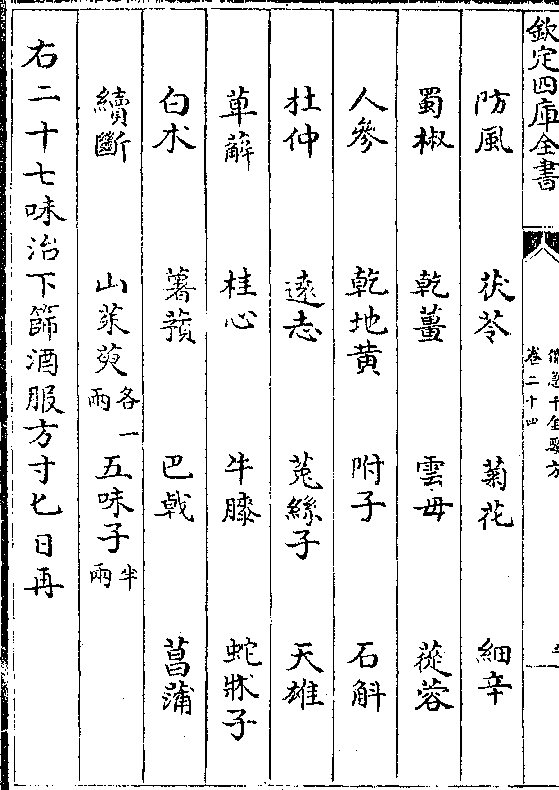 欽定四庫全書
備急千金要方
卷二十四
防風 茯苓 菊花 細辛
蜀椒 乾薑 雲母 蓯蓉
人參 乾地黄 附子 石斛
杜仲 遠志 菟絲子 天雄
萆薢 桂心 牛膝 蛇牀子
白术 薯蕷 巴戟 菖蒲
續斷 山茱萸各一兩 五味子半兩
右二十七味治下篩酒服方寸匕日再